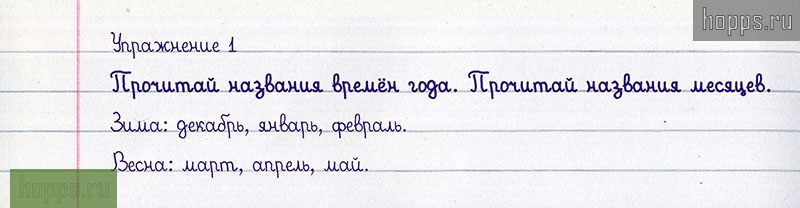 hopps.ru
Упражнение 1
Прочитай названия времён года. Прочитай названия месяцев.
Зима: декабрь, январь, февраль.
Весна: март, апрель, май.
hopps.ru